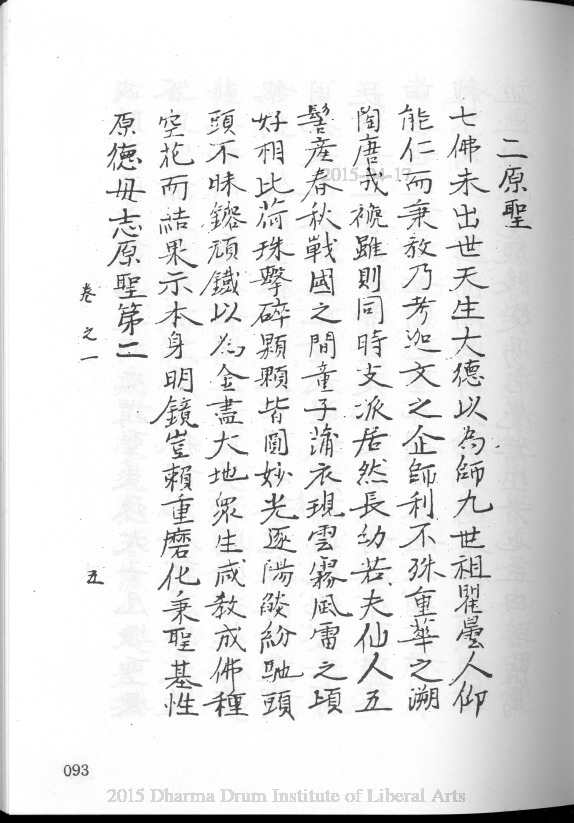 二原聖
七佛未出世天生大德以為師九世祖瞿曇人仰
能仁而秉教乃考迦文之企師利不殊重華之溯
陶唐戎禠雖則同時支派居然長幼若夫仙人五
髻產春秋戰國之間童子蒲衣現雲霧風雷之頃
好相比荷珠擊碎顆顆皆圓妙光逐陽燄紛馳頭
頭不昧鎔頑鐵以為金盡大地眾生咸教成佛種
空花而結果示本身明鏡豈賴重磨化秉聖基性
原德毋志原聖第二
卷之一
五
093
2015-11-17
2015 Dharma Drum Institute of Liberal Arts